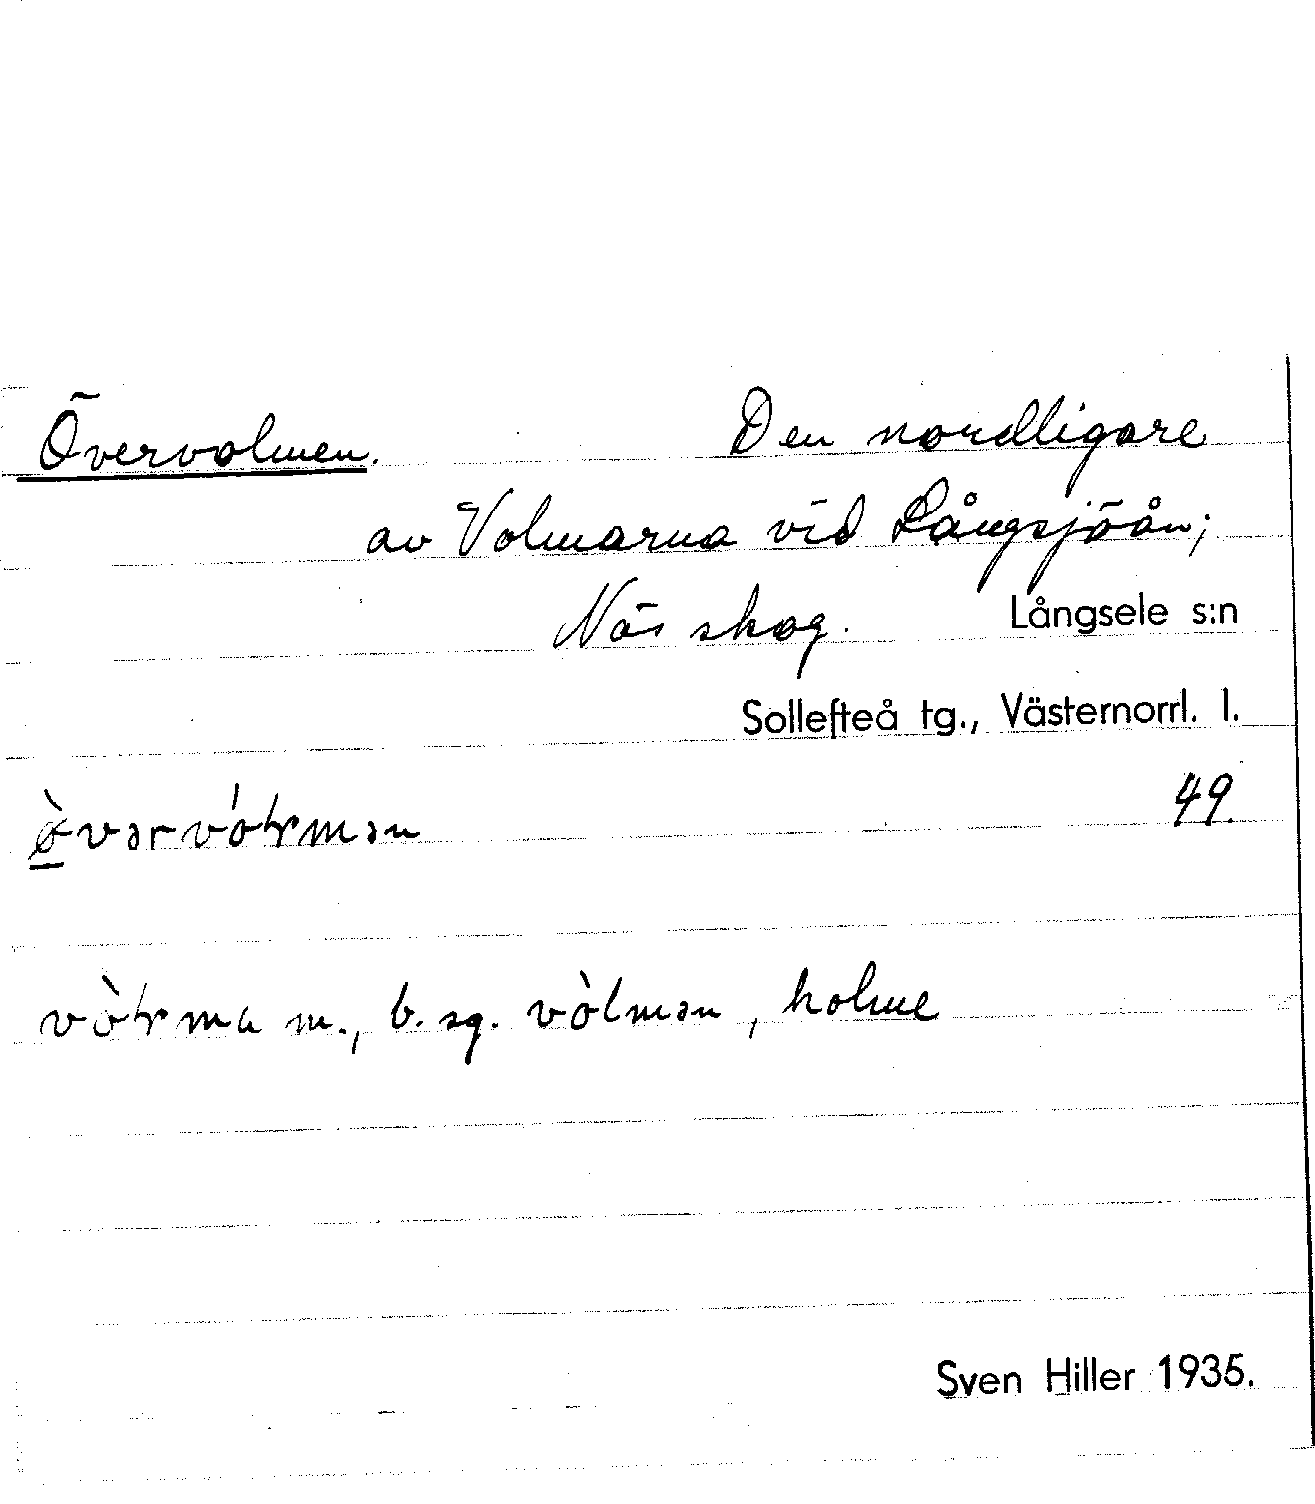 Övervolmen. Den nordligare
av Volmarna vid Långsjöån;
Näs skog. Långsele s:n
Sollefteå tg., Västernorrl. l.
49.
m., b. sg. vòlmən, holme
Sven Hiller 1935.